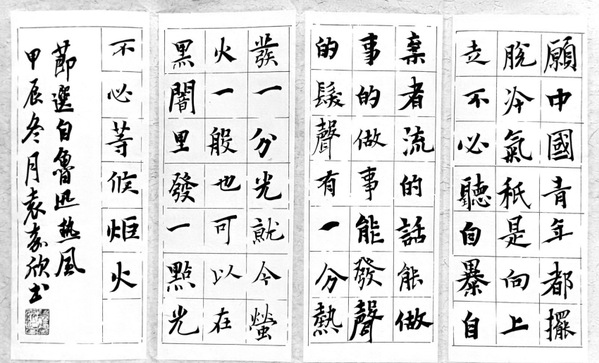 願中國青年都擺
脫冷氣祇是向上
走不必聽自暴自
棄者流的話能做
事的做事能發聲
的髮聲有一分熱
發一分光就令螢
火一般也可以在
黑闇里發一點光
不必等候炬火
節選自魯迅熱風
甲辰冬月袁嘉欣书